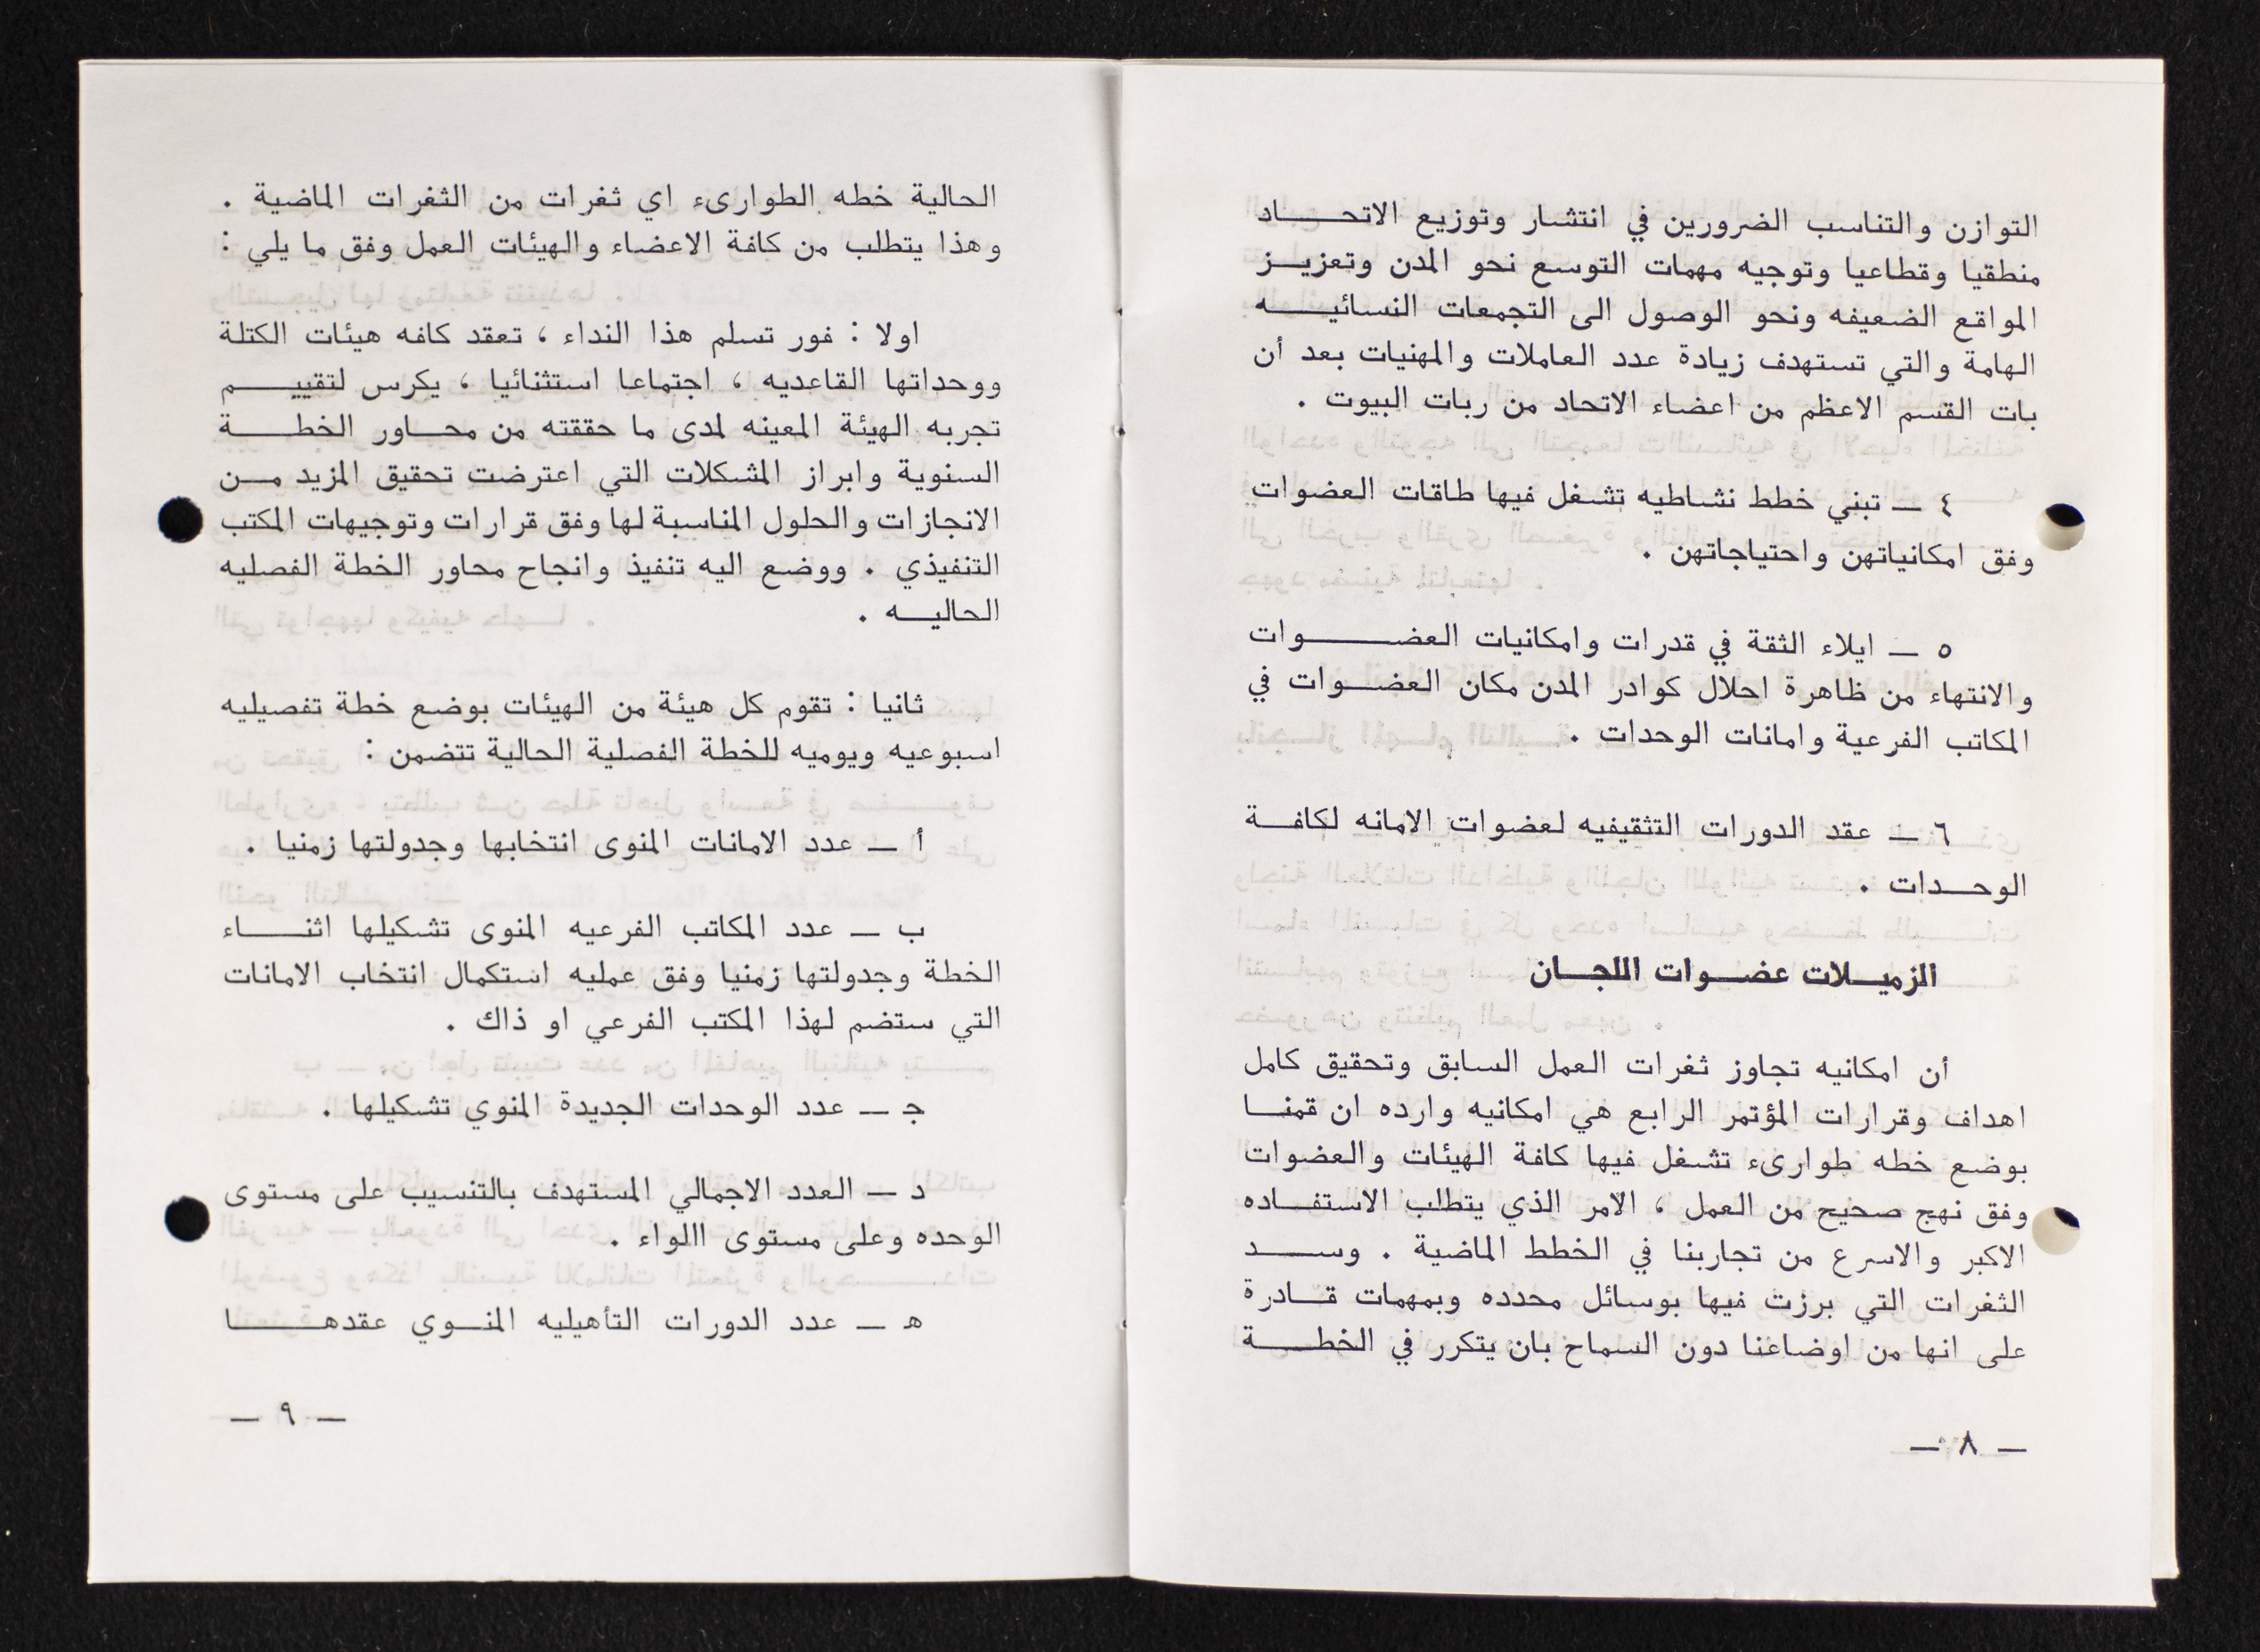 التوازن والتناسب الضرورين في انتشار وتوزيع الاتحـــــاد
منطقيا وقطاعيا وتوجيه مهمات التوسع نحو المدن وتعزيــز
المواقع الضعيفه ونحو الوصول الى التجمعات النسائيـــــه
الهامة والتي تستهدف زيادة عدد العاملات والمهنيات بعد أن
بات القسم الاعظم من اعضاء الاتحاد من ربات البيوت .
٤ — تبني خطط نشاطيه تشغل فيها طاقات العضوات
وفق امكانياتهن واحتياجاتهن .
٥ — ايلاء الثقة في قدرات وامكانيات العضـــــــوات
والانتهاء من ظاهرة احلال كوادر المدن مكان العضـــوات في
المكاتب الفرعية وامانات الوحدات .
٦ — عقد الدورات التثقيفيه لعضوات الامانه لكافــــة
الوحـــدات .
الزميـــلات عضـــوات اللجـــان
أن امكانيه تجاوز ثغرات العمل السابق وتحقيق كامل
اهداف وقرارات المؤتمر الرابع هي امكانيه وارده ان قمنـــا
بوضع خطه طوارىء تشغل فيها كافة الهيئات والعضوات
وفق نهج صحيح من العمل ، الامر الذي يتطلب الاستفـــاده
الاكبر والاسرع من تجاربنا في الخطط الماضية . وســـــد
الثغرات التي برزت فيها بوسائل محدده وبمهمات قـــادرة
على انها من اوضاعنا دون السماح بان يتكرر في الخطـــــة
— ٨ —
الحالية خطه الطوارىء اي ثغرات من الثغرات الماضية .
وهذا يتطلب من كافة الاعضاء والهيئات العمل وفق ما يلي :
اولا : فور تسلم هذا النداء ، تعقد كافه هيئات الكتلة
ووحداتها القاعديه ، اجتماعا استثنائيا ، يكرس لتقييـــــم
تجربه الهيئة المعينه لمدى ما حققته من محـــاور الخطـــــة
السنوية وابراز المشكلات التي اعترضت تحقيق المزيد مـــن
الانجازات والحلول المناسبة لها وفق قرارات وتوجيهات المكتب
التنفيذي . ووضع اليه تنفيذ وانجاح محاور الخطة الفصليه
الحاليـــه .
ثانيا : تقوم كل هيئة من الهيئات بوضع خطة تفصيليه
اسبوعيه ويوميه للخطة الفصلية الحالية تتضمن :
أ — عدد الامانات المنوى انتخابها وجدولتها زمنيا .
ب — عدد المكاتب الفرعيه المنوى تشكيلها اثنـــــاء
الخطة وجدولتها زمنيا وفق عمليه استكمال انتخاب الامانات
التي ستضم لهذا المكتب الفرعي او ذاك .
جـ — عدد الوحدات الجديدة المنوي تشكيلها .
د — العدد الاجمالي المستهدف بالتنسيب على مستوى
الوحده وعلى مستوى االلواء .
هـ — عدد الدورات التأهيليه المنـــوي عقدهـــــــا
— ٩ —